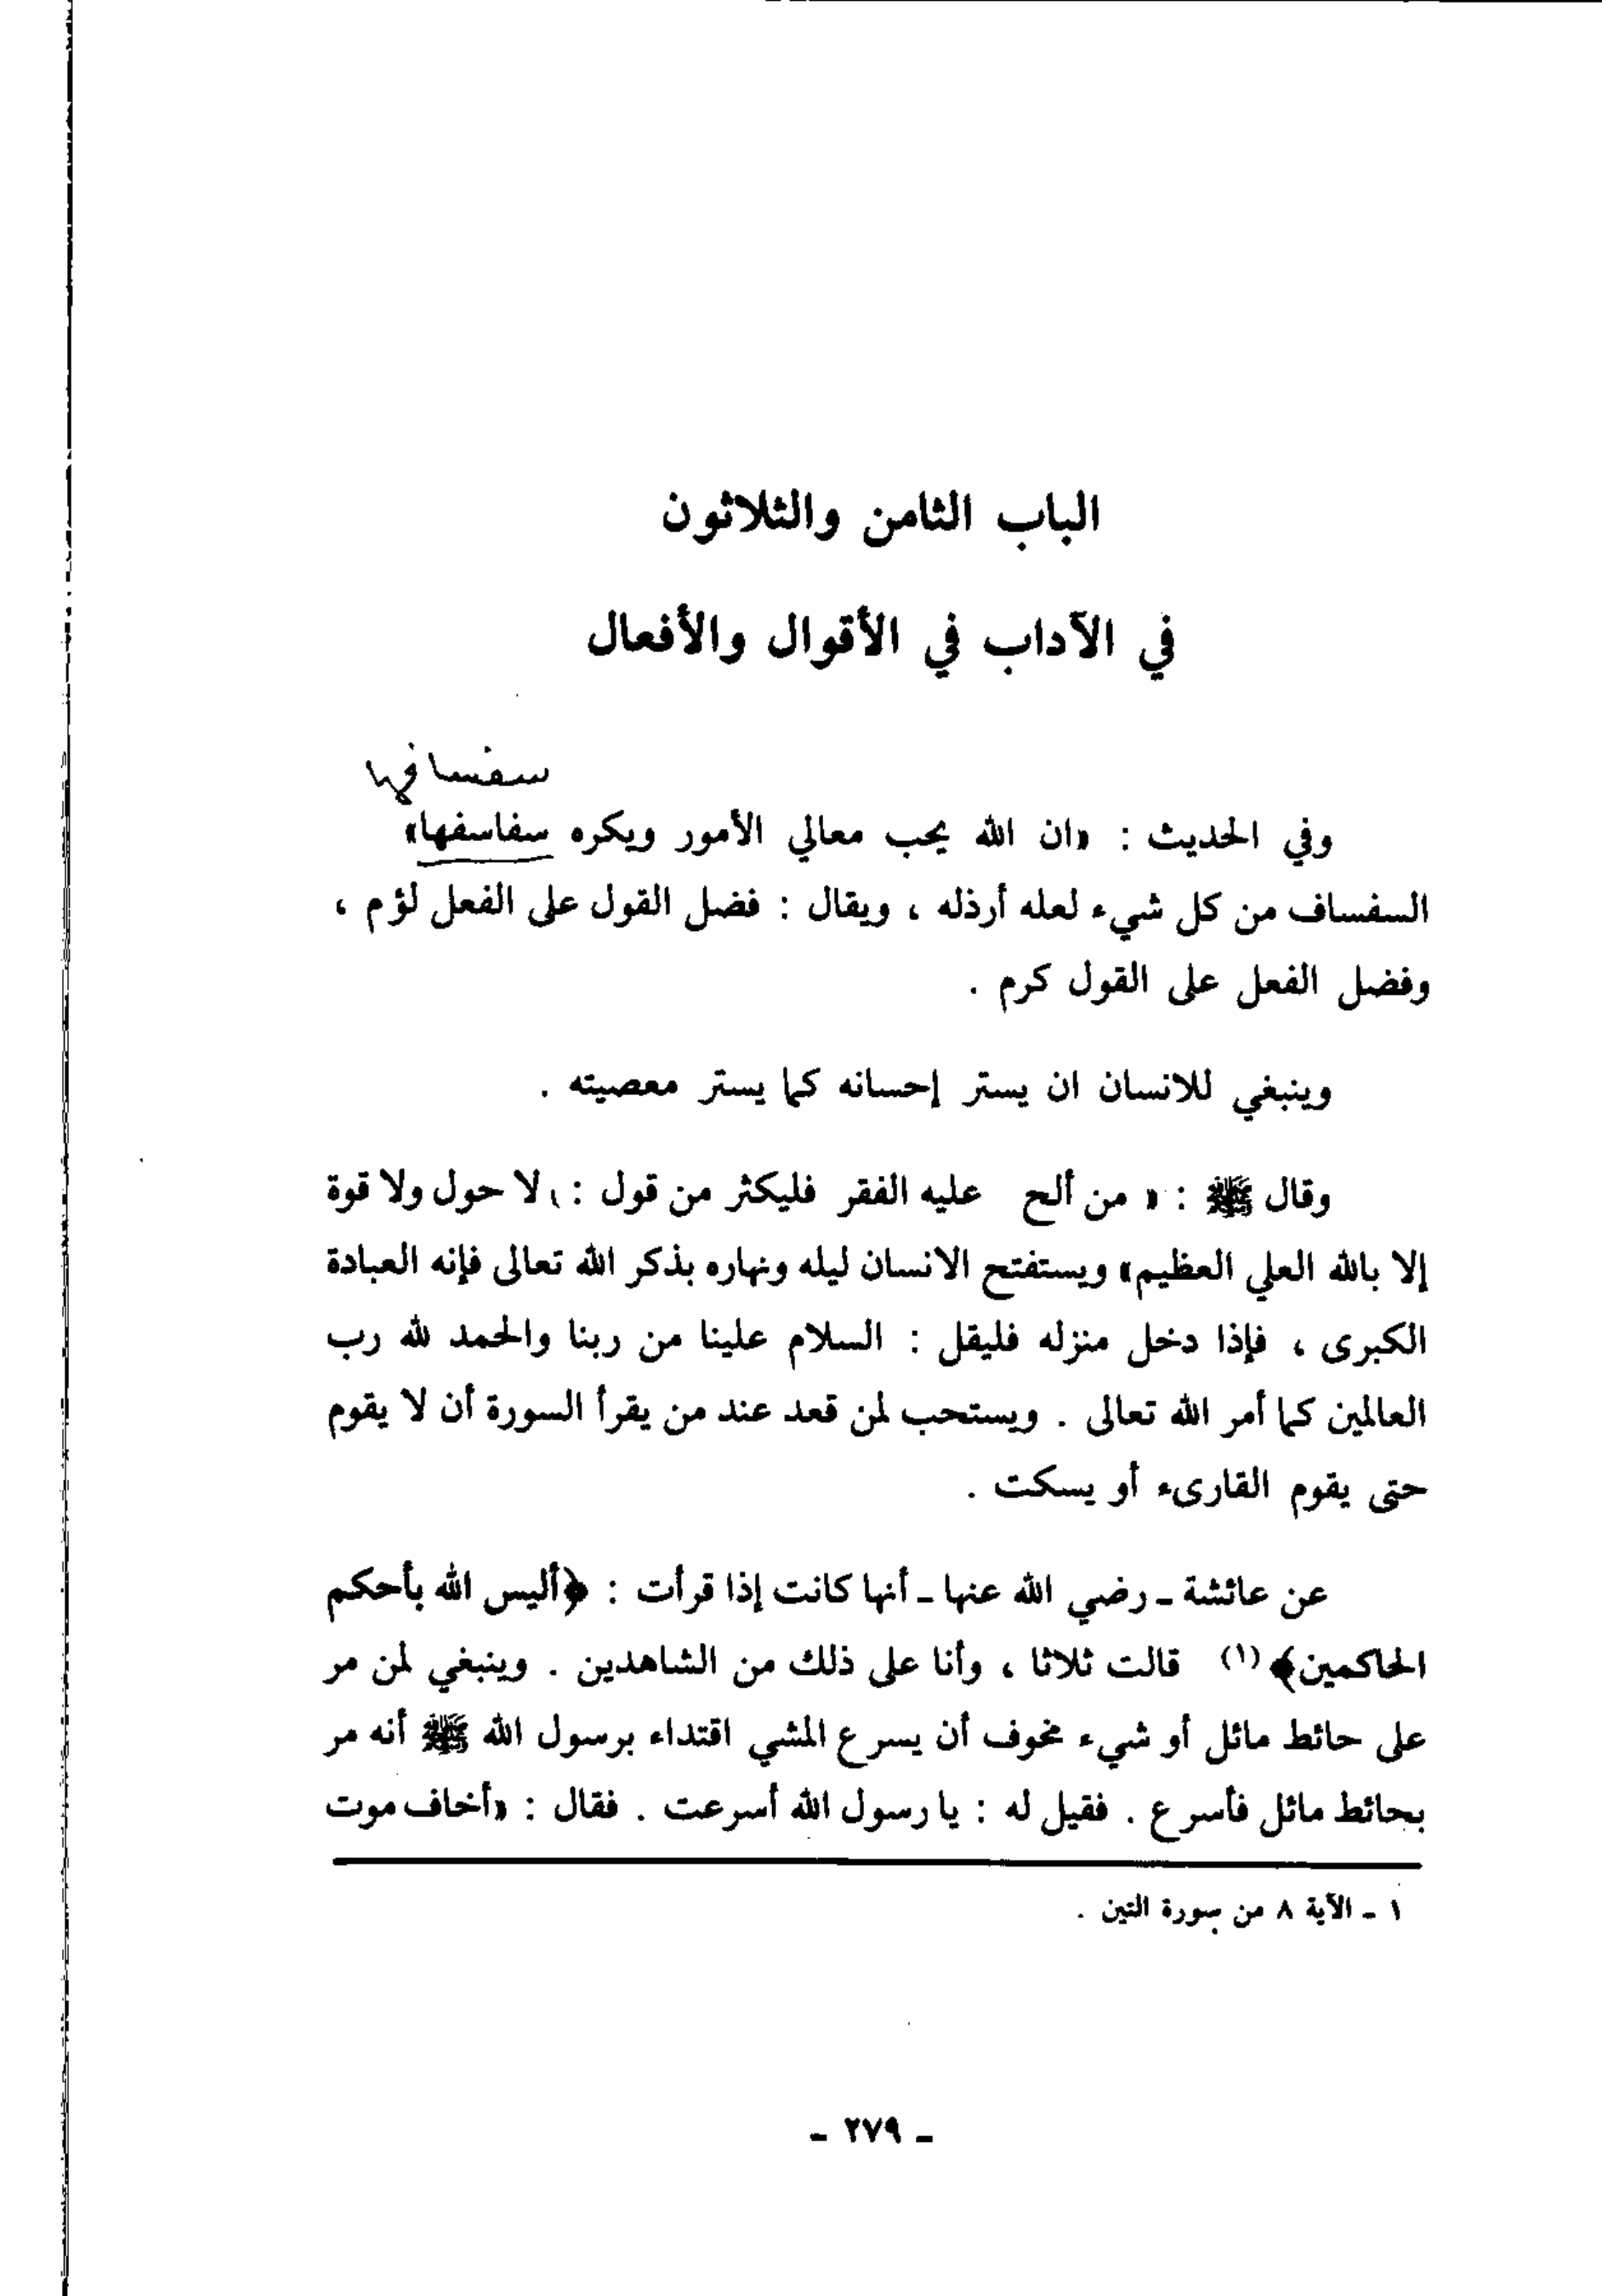 الباب الثامن والثلاثون
في الآداب في الأقوال والأفعال
سفسافها
وفي الحديث : «ان الله يحب معالي الأمور ويكره سفاسفها»
السفساف من كل شيء لعله أرذله ، ويقال : فضل القول على الفعل لؤم ،
وفضل الفعل على القول كرم .
وينبغي للانسان ان يستر إحسانه كما يستر معصيته .
وقال ﷺ : « من ألح عليه الفقر فليكثر من قول : لا حول ولا قوة
إلا بالله العلي العظيم» ويستفتح الانسان ليله ونهاره بذكر الله تعالى فإنه العبادة
الكبرى ، فإذا دخل منزله فليقل : السلام علينا من ربنا والحمد لله رب
العالمين كما أمر الله تعالى . ويستحب لمن قعد عند من يقرأ السورة أن لا يقوم
حتى يقوم القارىء أو يسكت .
عن عائشة ـ رضي الله عنها ـ أنها كانت إذا قرأت : ﴿أليس الله بأحكم
الحاكمين﴾ (١) قالت ثلاثا ، وأنا على ذلك من الشاهدين . وينبغي لمن مر
على حائط مائل أو شيء مخوف أن يسرع المشي اقتداء برسول الله ﷺ أنه مر
بحائط مائل فأسرع . فقيل له : يا رسول الله أسرعت . فقال : «أخاف موت
١ ـ الآية ٨ من سورة التين .
ـ ٢٧٩ ـ